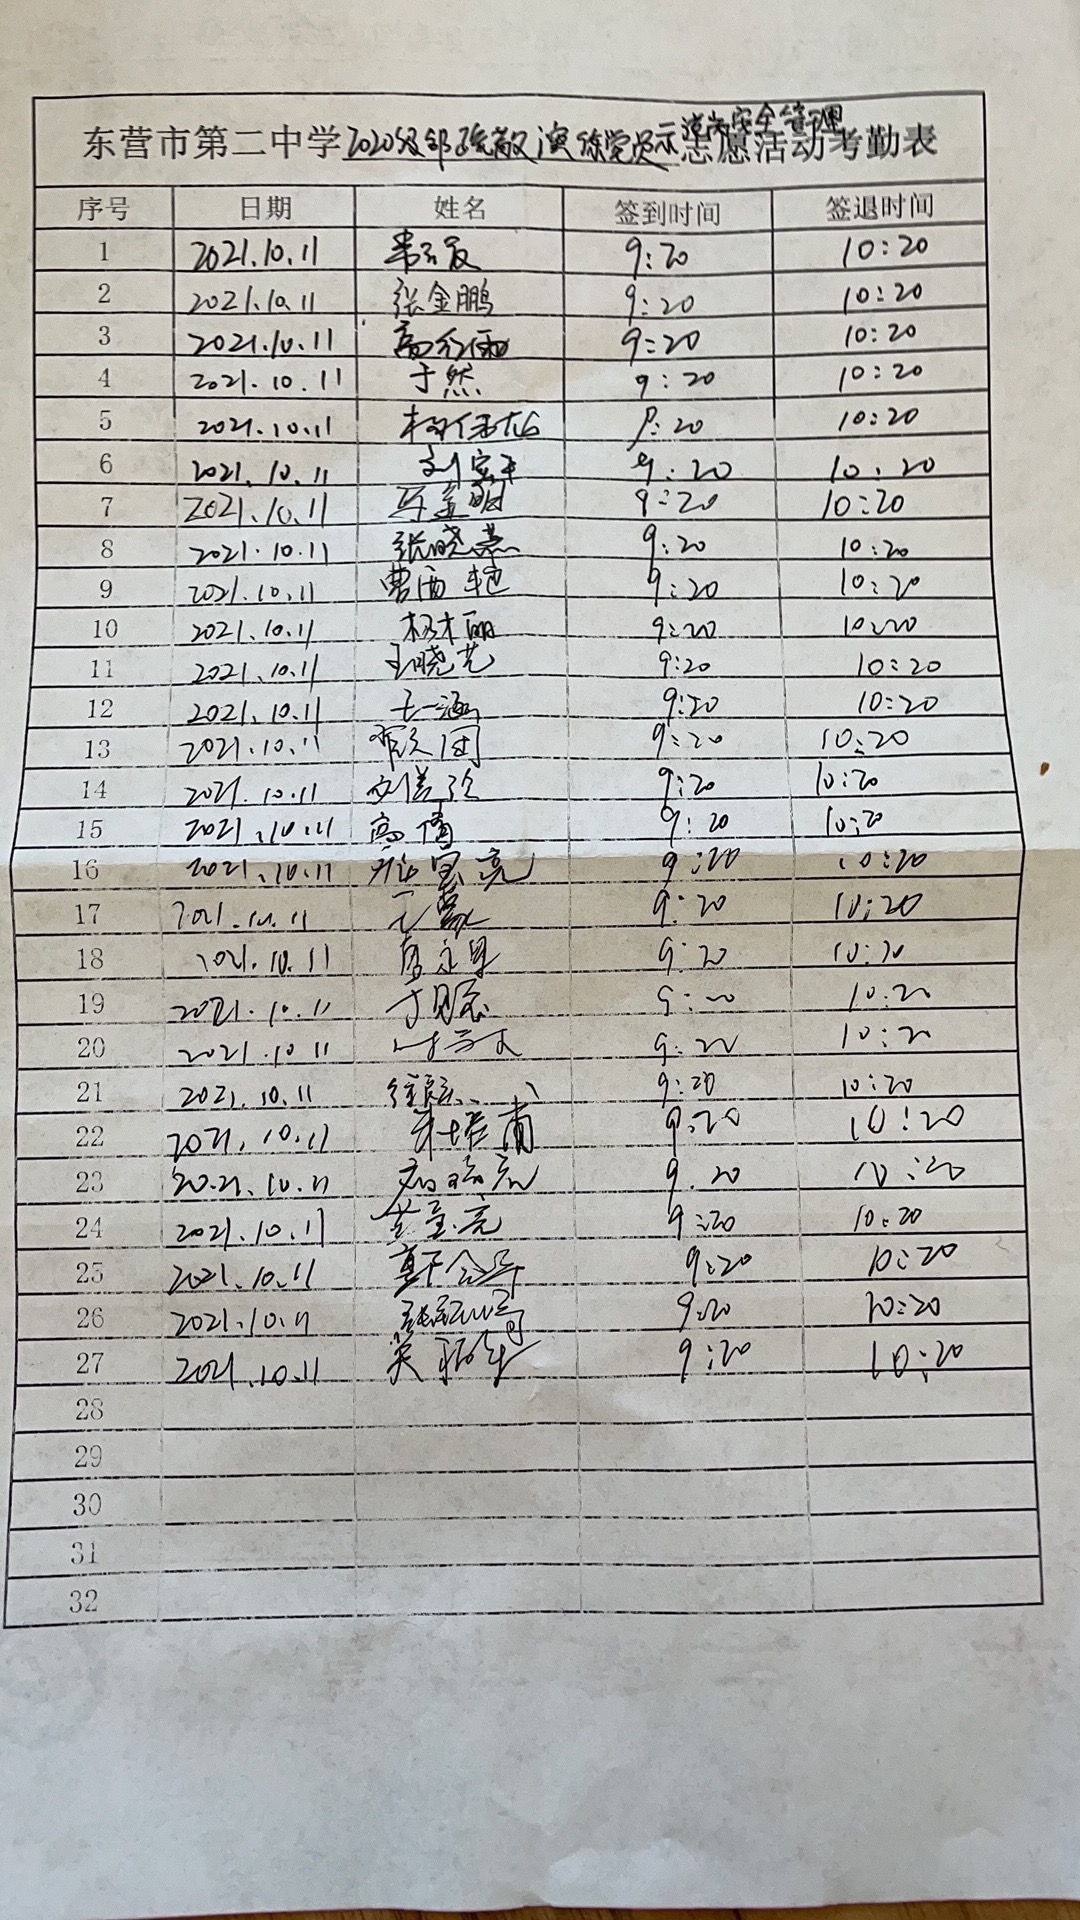 东营市第二中学2020级部疏散演练党员示 志愿活动考勤表
安全管理
序号 日期 姓名 签到时间 签退时间
1 2021.10.11 9:20 10:20
2 2021.10.11 张金鹏 9:20 10:20
3 2021.10.11 9:20 10:20
4 2021.10.11 于然 9:20 10:20
5 2021.10.11 9:20 10:20
6 2021.10.11 9:20 10:20
7 2021.10.11 9:20 10:20
8 2021.10.11 张晓燕 9:20 10:20
9 2021.10.11 曹雨艳 9:20 10:20
10 2021.10.11 杨木丽 9:20 10:20
11 2021.10.11 王晓艺 9:20 10:20
12 2021.10.11 王一涵 9:20 10:20
13 2021.10.11 9:20 10:20
14 2021.10.11 9:20 10:20
15 2021.10.11 高倩 9:20 10:20
16 2021.10.11 9:20 10:20
17 2021.10.11 9:20 10:20
18 2021.10.11 9:20 10:20
19 2021.10.11 9:20 10:20
20 2021.10.11 9:20 10:20
21 2021.10.11 9:20 10:20
22 2021.10.11 9:20 10:20
23 2021.10.11 9:20 10:20
24 2021.10.11 9:20 10:20
25 2021.10.11 9:20 10:20
26 2021.10.11 9:20 10:20
27 2021.10.11 9:20 10:20
28
29
30
31
32